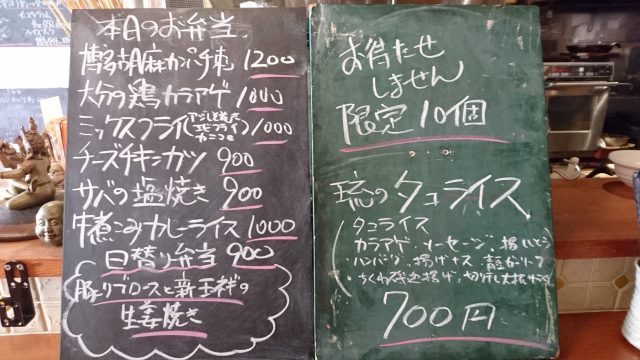 本日のお弁当
博多胡麻カンパチ丼 1200
大分の鶏カラアゲ 1000
ミックスフライ 1000
エビフライ
カニコロ
チーズチキンカツ 900
サバの塩焼き 900
牛煮こみカレーライス 1000
日替り弁当 900
豚リブロースと新玉ネギの
生姜焼き
お待たせ
しません
限定10個
琉のタコライス
タコライス
カラアゲ・ソーセージ・
ハンバーグ・揚げナス
・ちくわ磯辺揚げ・切り干し大根
700円